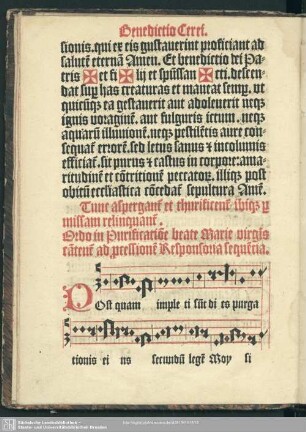 Benedictio Cerei.
sionis. qui ex eis gustauerint proficiant ad
salutē eternā Amen. Et benedictio dei Pa-
tris ✠ et fi ✠ lij et spūssan ✠ cti. descen-
dat sup has creaturas et maneat semp. vt
quicūq; ea gestauerit aut adoleuerit neq;
ignis voragine. aut fulguris ictum. neq;
aquarū illuuionē. neq; pestilētis aure con-
sequat errorē. sed letus sanus & incolumis
efficiat. sit purus & castus in corpore: ama-
ritudinē et cōtritionē peccatoꝝ. illiq; post
obitū ecclesiastica cōcedat sepultura Amē.
Tunc aspergant et thurificent ibiq; p
missam relinquant.
Ordo in Purificatiōe beate Marie virgīs
cātent ad pcessionē Responsoria sequētia.
POst quam imple ti sūt di es purga
tionis ei us secundū legē Moy si